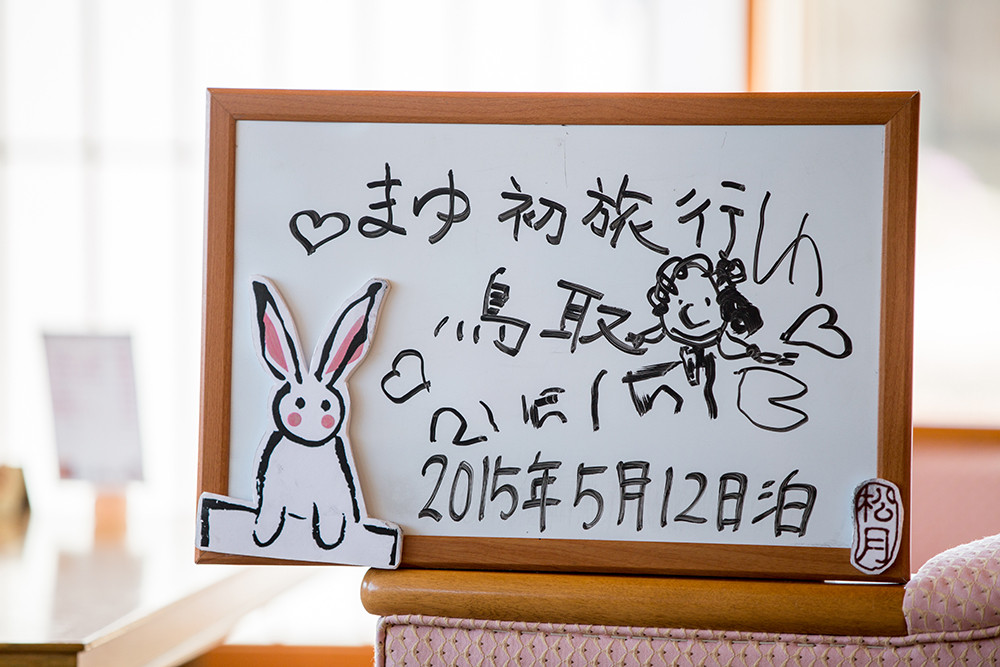 まゆ初旅行
鳥取
2015年5月12日泊
松月